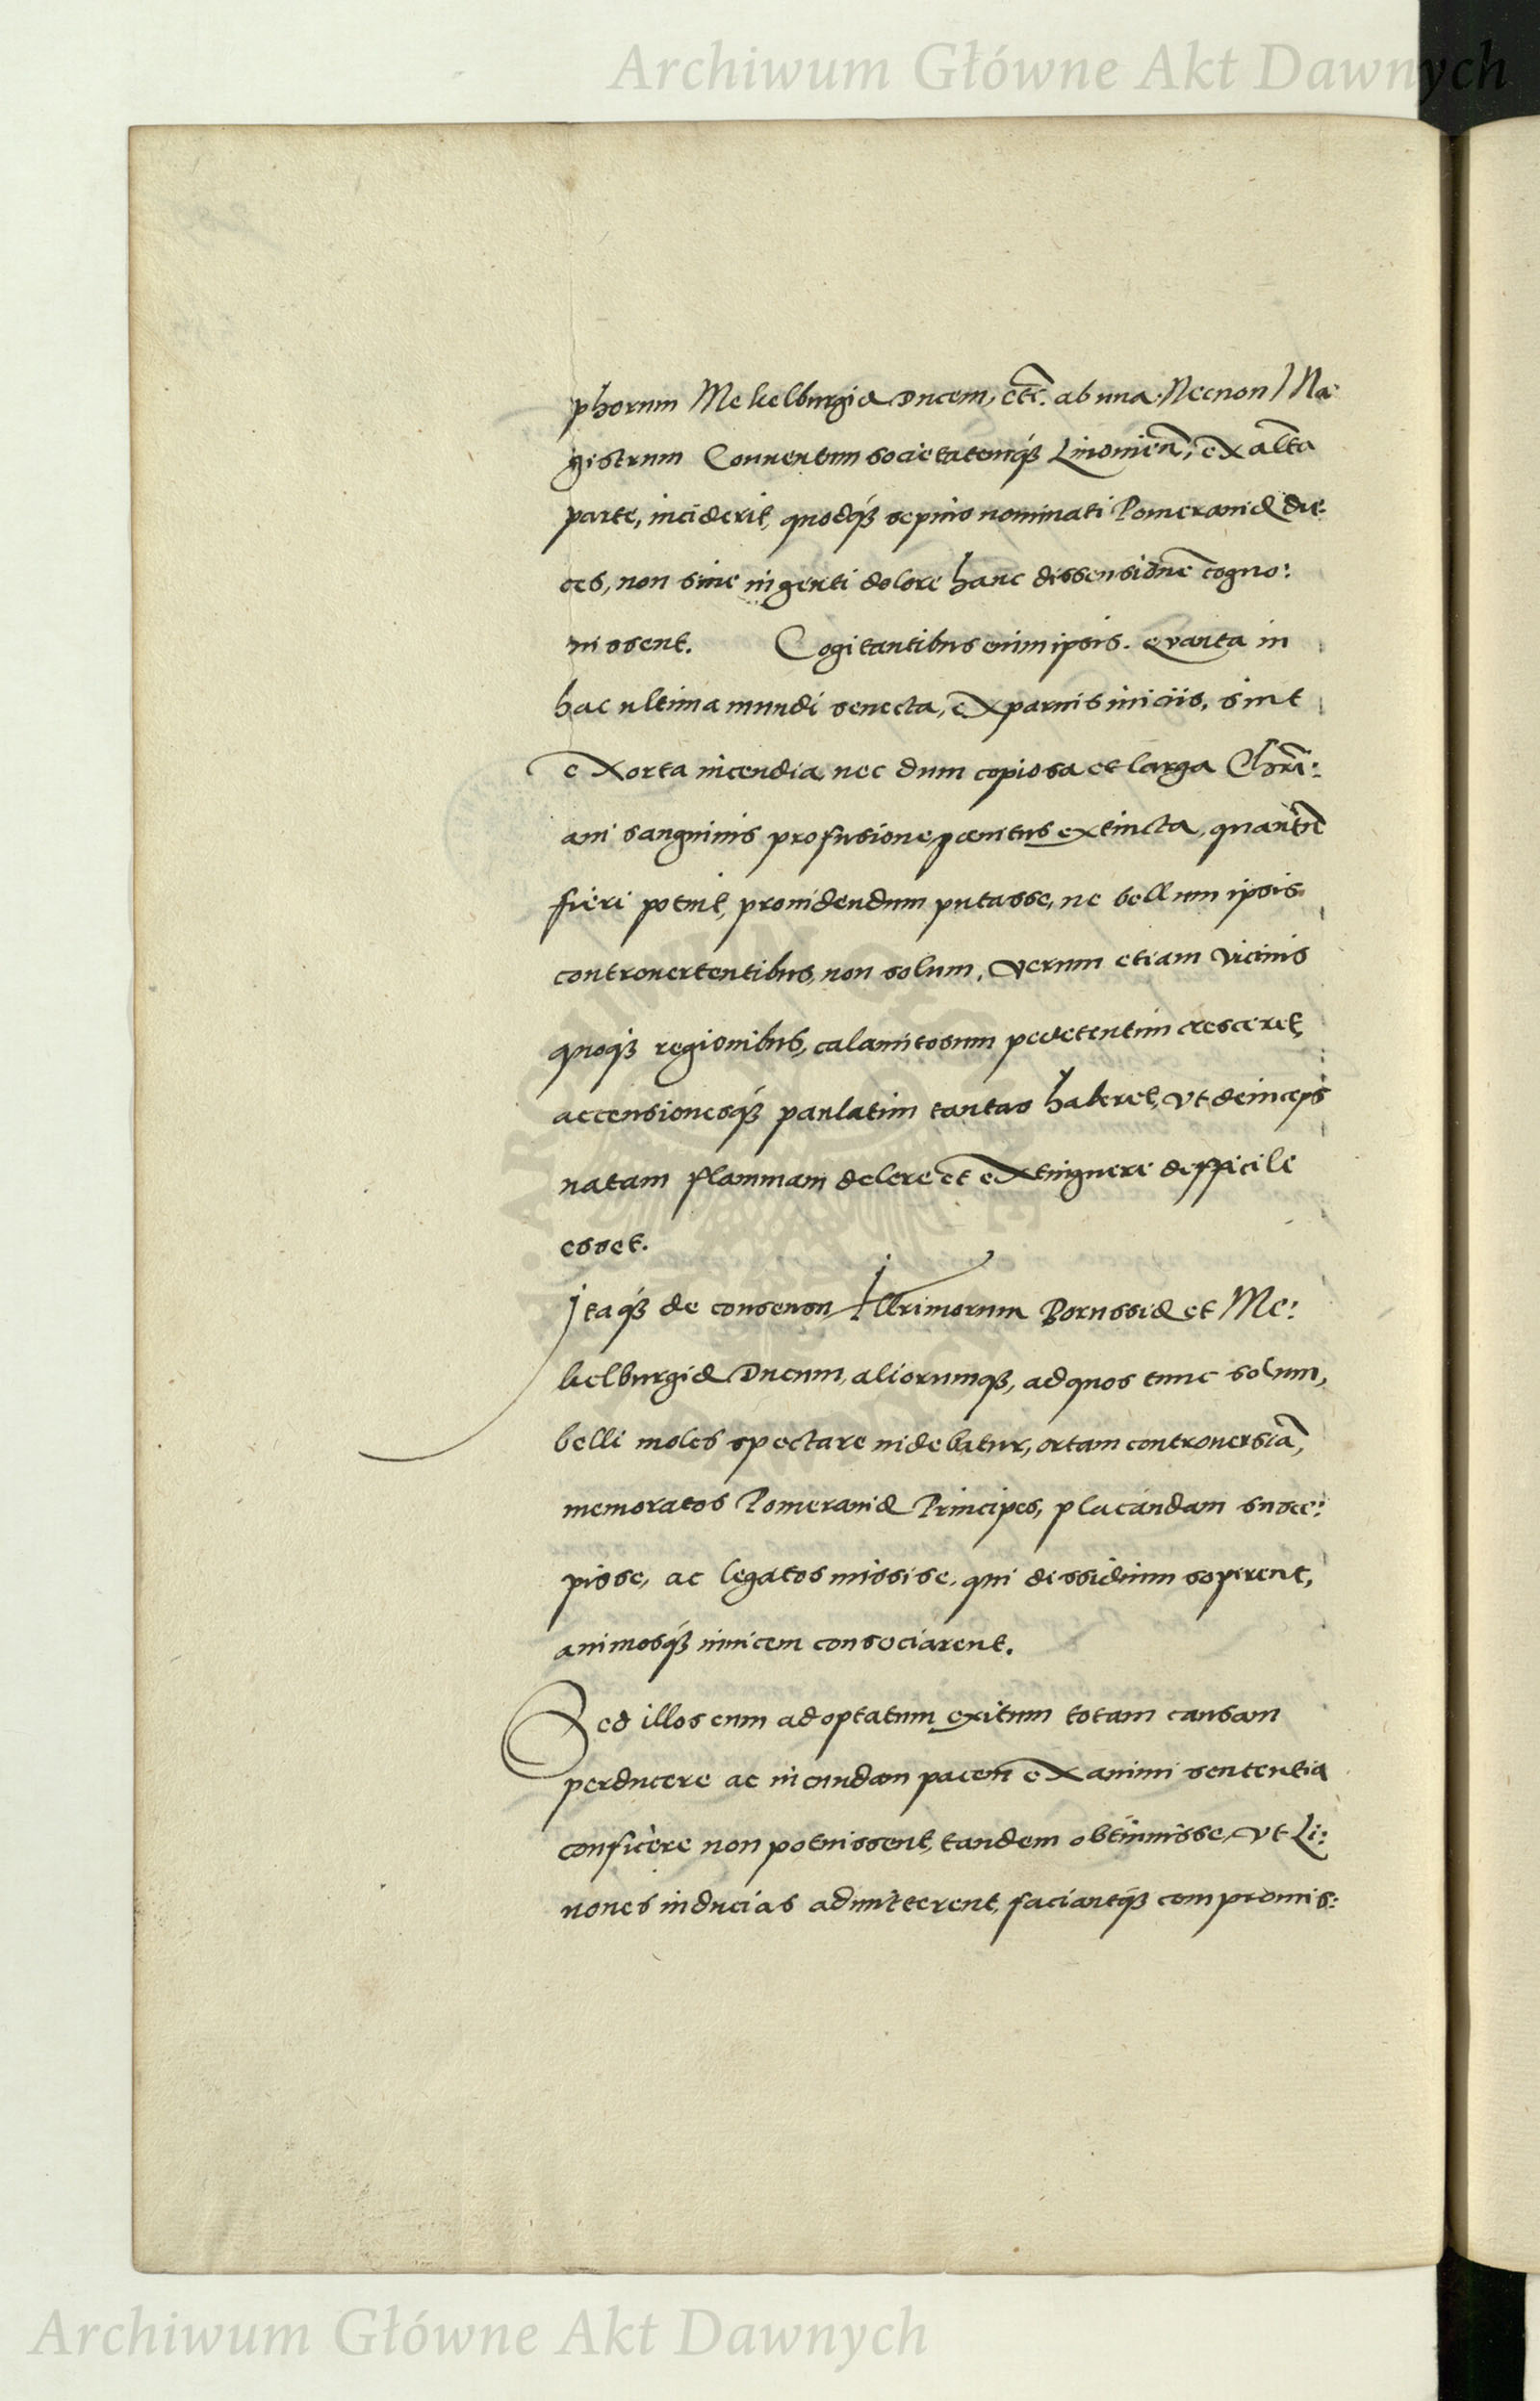 Archiwum Główne Akt Dawnych
phorum Mekelburgiæ Ducem, etc. ab una. Necnon Ma-
gistrum Conuentum societatemq́ꝫ Liuonień, ex alťa
parte, inciderit, quodq́ꝫ sepius nominati Pomeraniæ du:
ces, non sine ingenti dolore hanc dissensionē cogno:
uissent. Cogitantibus enim ipsis. Quanta in
hac ultima mundi senecta, ex paruis iniciis, sint
exorta incendia nec dum copiosa et larga Chrīi:
ani sanguinis profusione, pœnitus extincta, quantū
fieri potuit, prouidendum putasse, ne bellum ipsis
controuertentibus, non solum, verum etiam vicinis
quoqꝫ regionibus, calamitosum pedetentim cresceret,
accensionesq́ꝫ paulatim tantas haberet, vt deinceps
natam flammam delere et extinguere difficile
esset.
Itaq́ꝫ de consensu Illrimorum Borussiæ et Me:
kelburgiæ Ducum, aliorumqꝫ, ad quos tunc solum,
belli moles spectare uidebatur, ortam controuersiā,
memoratos Pomeraniæ Principes, placandam susce:
pisse, ac legatos missise, qui dissidium sopirent,
animosq́ꝫ inuicem consociarent.
Sed illos cum ad optatum exitum totam causam
perducere ac iucundam pacem ex animi sententia
conficere non potuissent, tandem obtinuisse, vt Li:
uones inducias admitterent, faciantq́ꝫ compromis:
ARCHIWUM GŁÓWNE AKT DAWNYCH
Archiwum Główne Akt Dawnych